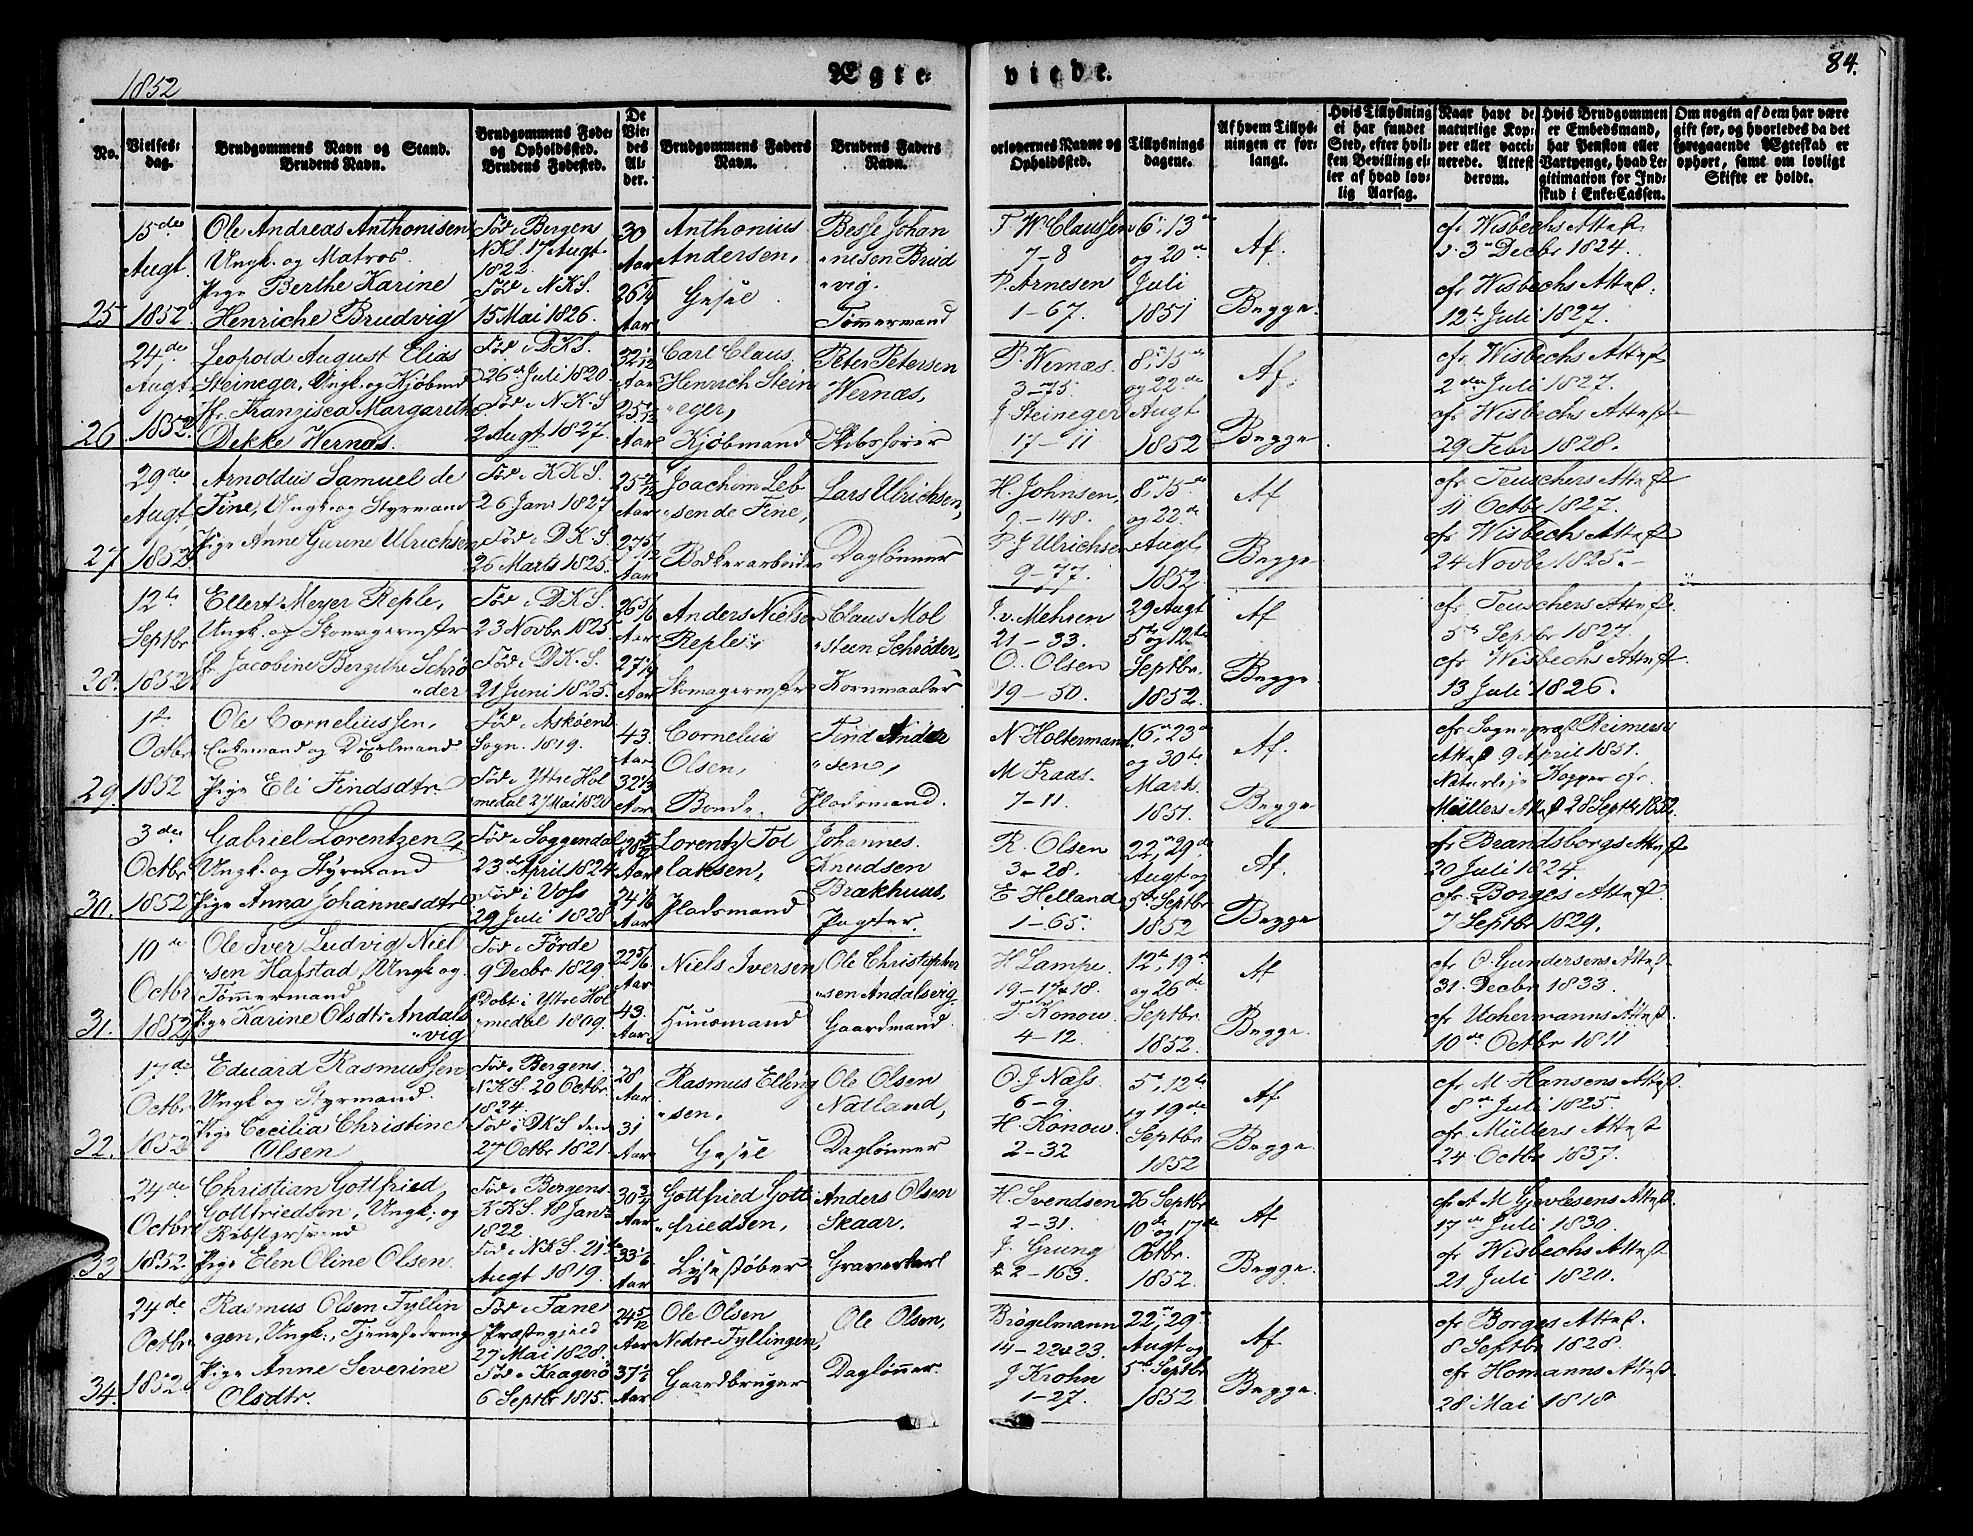 1852
Ægte-
viede.
84.
No.
Vielses-
dag.
Brudgommens Navn og Stand.
Brudens Navn.
Brudgommens Føde-
og Opholdssted.
Brudens Fødested.
De
Vie-
des
Al-
der.
Brudgommens Faders
Navn.
Brudens Faders
Navn.
orlovernes Navne og
Opholdssted.
Tillysnings
dagene.
Af hvem Tillys-
ningen er for-
langt.
Hvis Tillysning
ei har fundet
Sted, efter hvil-
ken Bevilling el-
ler af hvad lov-
lig Aarsag.
Naar havt de
naturlige Kop-
per eller vacci-
nerede. Attest
derom.
Hvis Brudgommen
er Embedsmand,
har Pension eller
Vartpenge, hvad Le-
gitimation for Ind-
skud i Enke-Cassen.
Om nogen af dem har være
gift før, og hvorledes da det
foregaaende Ægteskab er
ophørt, samt om lovligt
Skifte er holdt.
25
15de
Augt
1852
Ole Andreas Anthonisen
Ungk. og Matros.
Pige Berthe Karine
Henriche Brudvig
Fød i Bergens
NKS. 17 Augt
1822.
Fød i NKS.
15 Mai 1826.
30
Aar
26 1/4
Aar
Anthonius
Andersen,
Gesel
Besse Johan
nisen Brud
vig.
Tømermand
T W Claussen
7-8
P. Arnesen
1-67.
6, 13de
og 20de
Juli
1851
Af.
Begge.
cfr Wisbechs Attest
d. 3 Decbr 1824.
cfr Wisbechs Attest.
12te Juli 1827.
26
24de
Augt
1852
Leopold August Elias
Steineger, Ungk. og Kjøbmd
Fr. Franzisca Margarethe
Dekke Wernøs.
Fød i DKS.
26de Juli 1820
Fød i N.K.S
2 Augt 1827.
32 1/12
Aar
25 1/12
Aar
Carl Claus
Henrich Stein
eger,
Kjøbmand
Peter Petersen
Wernæs,
Skibsfører
P. Wernæs.
3-75.
J Steineger
17-11
8, 15de
og 22de
Augt
1852
Af.
Begge
cfr Wisbechs Attest
2den Juli 1827.
cfr Wisbechs Attest
29 Febr 1828.
27
29de
Augt
1852
Arnoldus Samuel de
Fine, Ungk. og Styrmand
Pige Anne Gurine Ulrichsen
Fød i KKS.
26 Janr 1827
Fød i DKS.
26 Marts 1825.
25 7/12
Aar
27 5/12
Aar
Joachim Leb
sen de Fine,
Bødkerarbeider
Lars Ulrichsen,
Daglønner
H. Johnsen,
9-148.
P. J Ulrichsen
9-77.
8, 15de
og 22de
Augt
1852.
Af
Begge
cfr Teuschers Attest
11 Octbr 1827.
cfr Wisbech Attest
24 Novbr 1825.
28.
12te
Septbr
1852
Ellert Meyer Reple,
Ungk. og Skomagermstr
Fr. Jacobine Bergithe Schrø
der
Fød i DKS.
23 Novbr 1825
Fød i DKS.
21 Juni 1825.
26 5/6
Aar
27 1/4
Aar
Anders Nielsen
Reple,
Skomagermstr
Claus Mol
steen Schrøder,
Kornmaaler
J. v. Mehren
21-33.
O. Olsen
19-50.
29 Augt
5te og 12te
Septbr.
1852.
Af
Begge.
cfr Teuschers Attest
5te Septbr 1827.
cfr Wisbechs Attest.
13 Juli 1826.
29.
1ste
Octbr
1852
Ole Corneliussen,
Enkemand og Døxelmand
Pige Eli Findsdtr.
Fød i Askøens
Sogn. 1819.
Fød i Yttre Hol
medal 27 Mai 1820
43.
Aar
32 1/3
Aar
Cornelius
Olsen,
Bonde.
Find Ander
sen,
Pladsmand.
N Holtermann
M Fraas.
7-11.
16, 23de
og 30te
Marts
1851.
Af.
Begge
cfr Sognepræst Reimers
Attest 9 April 1851.
Naturlige Kopper cfr.
Müllers Attest 28 Septbr 1852.
30.
3de
Octbr
1852
Gabriel Lorentzen,
Ungk. og Styrmand
Pige Anna Johannesdtr
Fød i Soggendal
23de April 1824
Fød i Voss
29 Juli 1828
Aar
24 1/6
Aar
Lorentz Tol
laksen,
Pladsmand
Johannes
Knudsen
Brækhuus,
Pagter.
R. Olsen
3-28.
E Helland
1-65.
22, 29de
Augt og
5te Septbr
1852
Af.
Begge
cfr Brandsborgs Attest
20 Juli 1824.
cfr. Borges Attest.
7 Septbr 1829.
31.
10de
Octbr
1852
Ole Iver Ludvig Niel
sen Hafstad, Ungk. og
Tømmermand
Pige Karine Olsdtr Andals
vig
Fød i Førde
9 Decbr 1829.
Døbt i Yttre Hol
medal 1809.
22 5/6
Aar
43.
Aar
Niels Iversen
Huusmand
Ole Christopher
sen Andalsvig,
Gaardmand.
H Lampe.
19-18.
F. Konow
4-12.
12te, 19de
og 26de
Septbr.
1852.
Af
Begge.
cfr O. Gundersens Attest
31. Decbr 1833.
cfr Uchermanns Attest.
10de Octbr 1811
32.
17de
Octbr
1852
Eduard Rasmussen
Ungk og Styrmand.
Pige Cecilia Christine
Olsen
Fød i Bergens
NKS. 20 Octbr
1824.
Fød i DKS den
27 Octbr 1821
28
Aar
31
Aar
Rasmus Elling
sen.
Gesel
Ole Olsen
Natland,
Daglønner
O. J Næss.
6-9.
H Konow.
2-32
5te, 12te
og 19de
Septbr
1852
Af
Begge
cfr M Hansens Attest.
8de Juli 1825
cfr. Müllers Attest
24 Octbr 1837.
33
24de
Octbr
1852
Christian Gottfried
Gottfriedsen, Ungk. og
Pige Elen Oline Olsen.
Fød i Bergens
KKS. 18 Janr
1822.
Fød i NKS. 21de
Augt 1819.
30 3/4
Aar
33 1/6
Aar
Gottfried Gott
friedsen,
Lysestøber
Anders Olsen
Skaar.
Graverkarl
H. Svendsen
2-31.
J. Grung
2-163.
26 Septbr
10de og 17de
Octbr.
1852.
Af
Begge.
cfr A M Gjevlesens Attest.
17de Juli 1830.
cfr Wisbechs Attest
21 Juli 1820.
34.
24de
Octbr
1852
Rasmus Olsen Fyllin
gen, Ungk., Tjenestedreng
Pige Anne Severine
Olsdtr.
Fød i Fane
Præstegjeld
27 Mai 1828.
Fød i Kragerø
6 Septbr 1815.
24 5/12
Aar
37 1/2
Aar
Ole Olsen
Nedre Fyllingen,
Gaardbruger
Ole Olsen,
Daglønner
Brøgelmann
14-22 & 23.
J Krohn
1-27.
22, 29de
Augt og
5te Septbr
1852
Af
Begge.
cfr Borges Attest.
8 Septbr 1828.
cfr Homanns Attest.
28 Mai 1818.